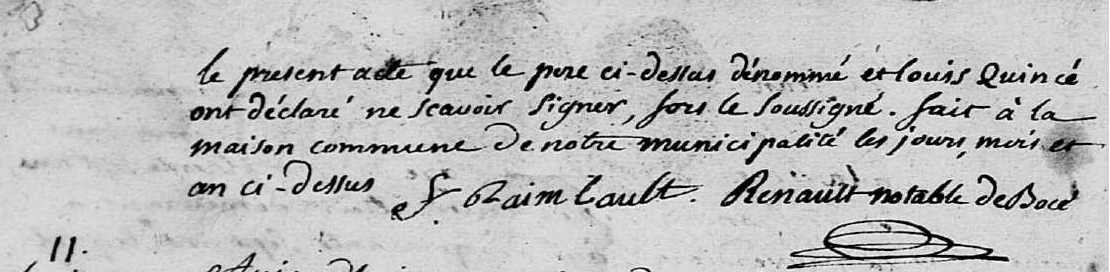 le présent acte que le pere ci-dessus dénommé et louis Quincé
ont déclaré ne scavoir signer, fors le soussigné. fait à la
maison commune de notre municipalité les jours, mois et
an ci-dessus
f Raimbault. Renault notable de Bocé
11.